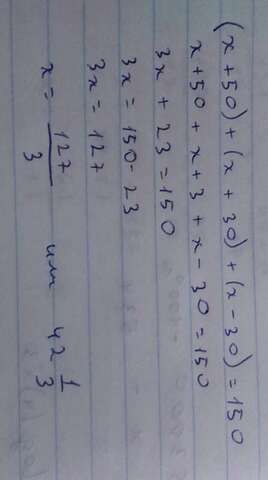 (x+50)+(x+30)+(x-30)=150
x+50+x+3+x-30=150
3x+23=150
3x=150-23
3x=127
x=127/3 или 42 1/3